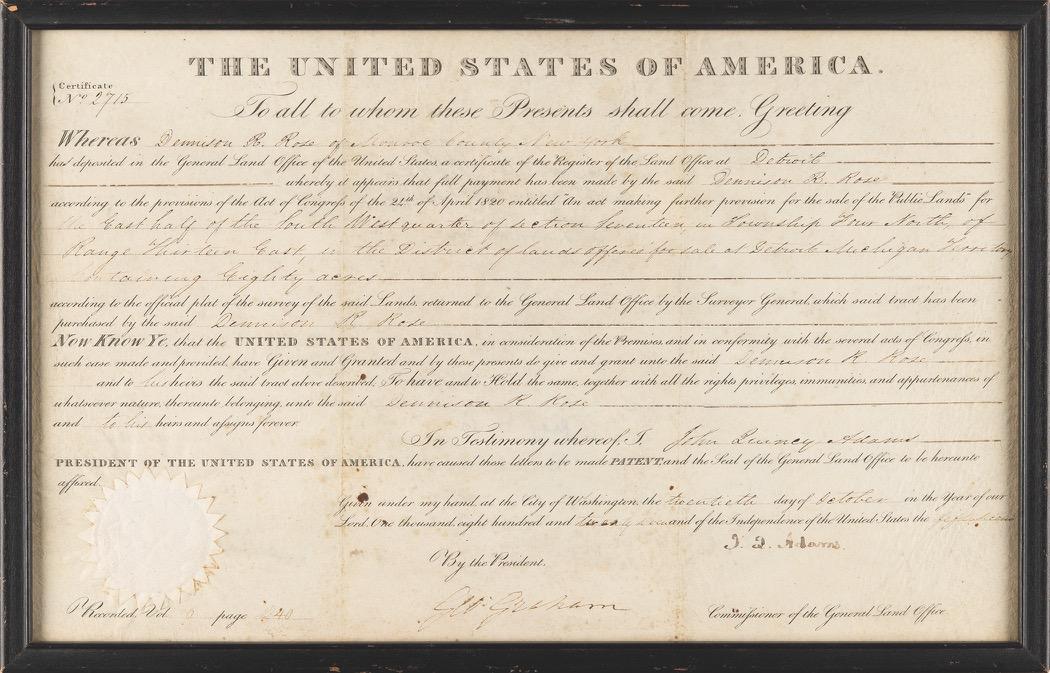 THE UNITED STATES OF AMERICA.
Certificate
No 2715
To all to whom these Presents shall come, Greeting
Whereas Dennison R. Rose of Monroe County New York
has deposited in the General Land Office of the United States, a certificate of the Register of the Land Office at Detroit
whereby it appears that full payment has been made by the said Dennison R. Rose
according to the provisions of the Act of Congress of the 24th of April 1820 entitled "An act making further provision for the sale of the Public Lands" for
the East half of the South West quarter of section Seventeen, in Township Four North, of
Range Thirteen East, in the District of lands offered for sale at Detroit Michigan
containing Eighty acres
according to the official plat of the survey of the said Lands, returned to the General Land Office by the Surveyor General, which said tract has been
purchased by the said Dennison R Rose
Now Know Ye, that the UNITED STATES OF AMERICA, in consideration of the Premises and in conformity with the several acts of Congress, in
such case made and provided, have Given and Granted and by these presents do give and grant unto the said Dennison R Rose
and to his heirs the said tract above described, To have and to Hold the same, together with all the rights privileges, immunities, and appurtenances of
whatsoever nature, thereunto belonging, unto the said Dennison R Rose
and to his heirs and assigns forever.
In Testimony whereof, I, John Quincy Adams
PRESIDENT OF THE UNITED STATES OF AMERICA, have caused these letters to be made PATENT, and the Seal of the General Land Office to be hereunto
affixed.
Given under my hand, at the City of Washington, the twentieth day of October in the Year of our
Lord, One thousand, eight hundred and and of the Independence of the United States the
J. Q. Adams.
By the President.
Geo: Graham
Commissioner of the General Land Office
Recorded, Vol. page 240